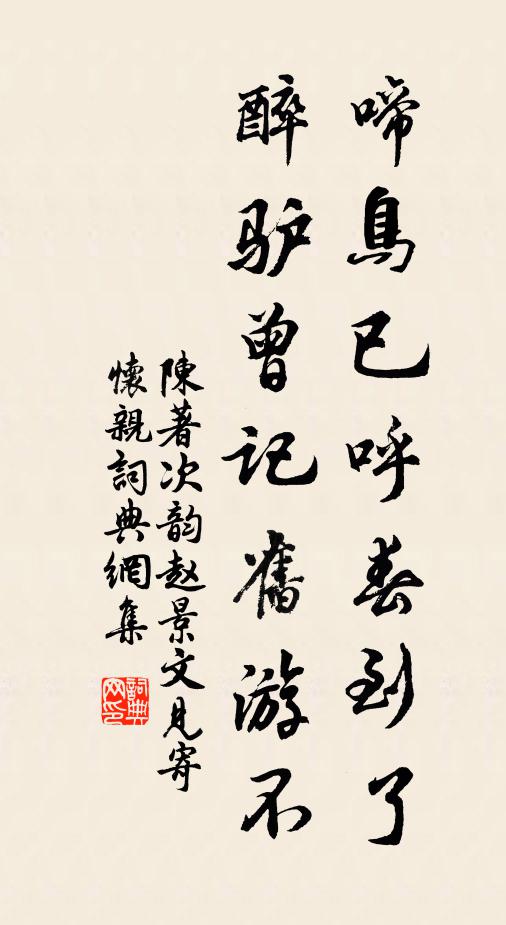 啼鳥已呼春到了
醉驴曾记舊游不
陳著次韵赵景文見寄
懷親詞典網集
詞典网印